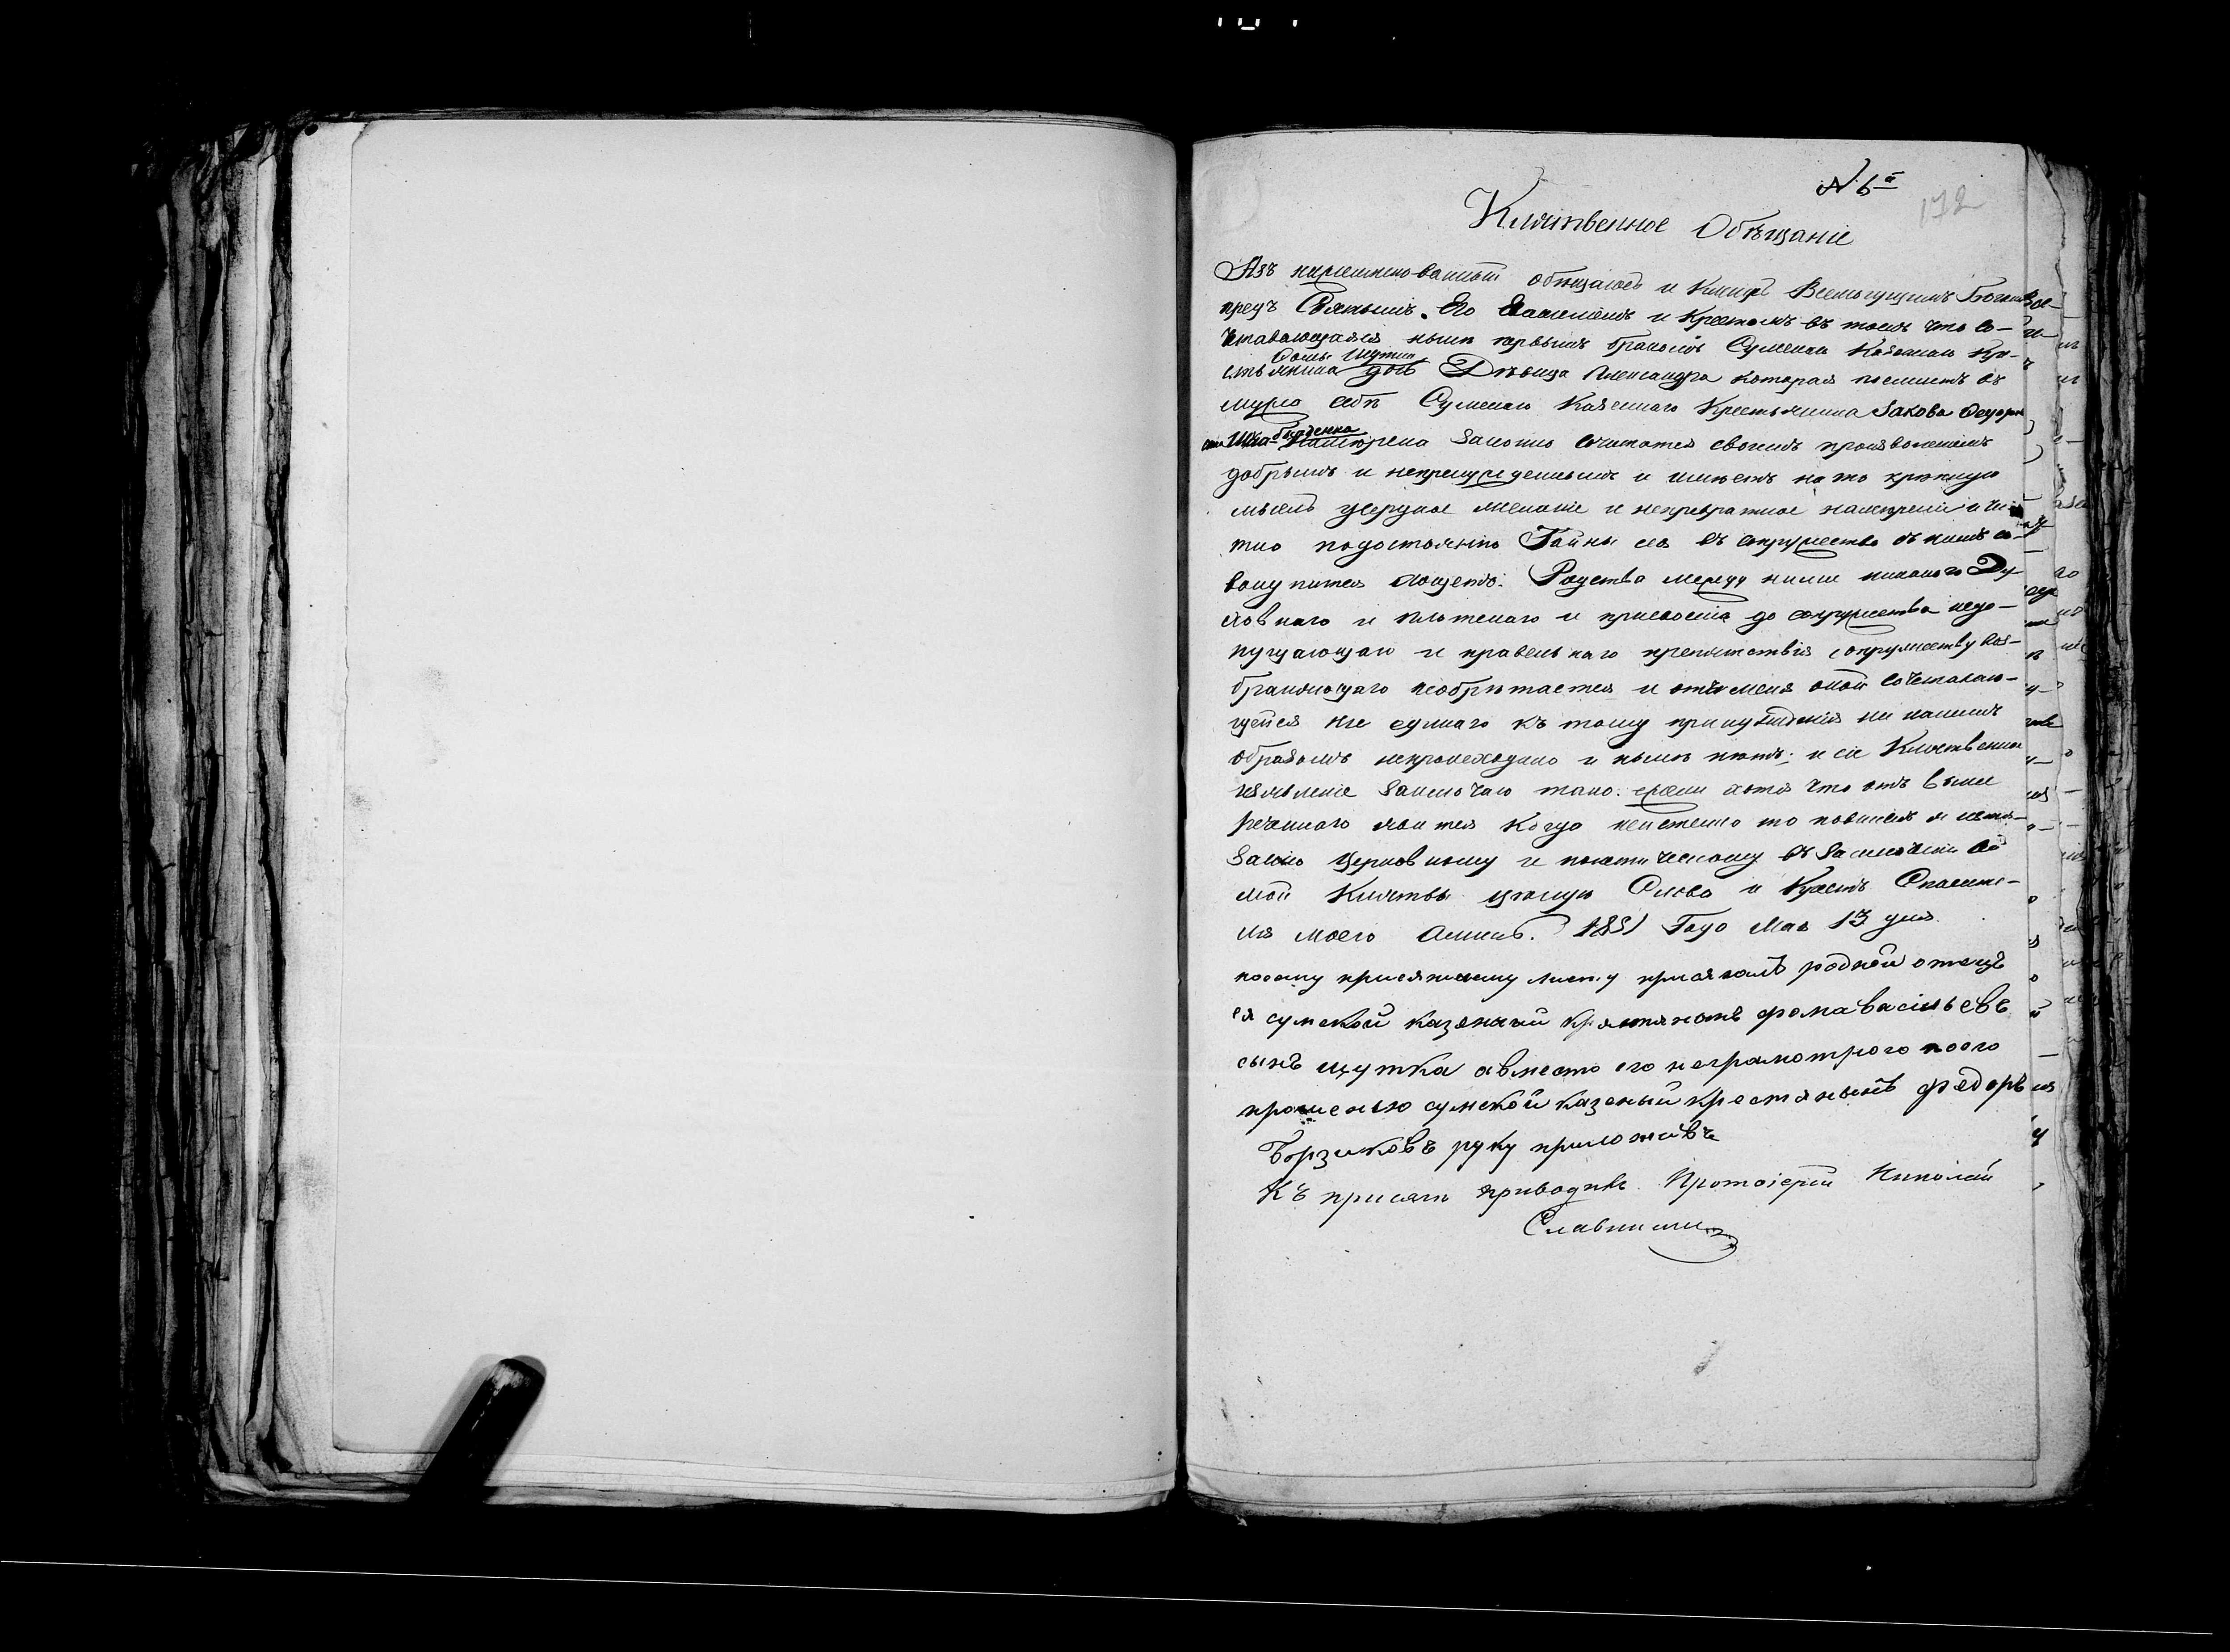 № 6й
172
Клятвенное Обѣщаніе
Азъ нижеименованный обѣщаюсь и клянусь Всемогущимъ Богомъ
предъ Святымъ Его Евангеліемъ и Крестомъ въ томъ что со-
четавающаяся нынѣ первымъ бракомъ Сумскаго Казеннаго Кре-
Фомы Шутки
стьянина дочь Дѣвица Александра которая поемлетъ въ
мужа себѣ Сумскаго Казеннаго Крестьянина Іакова Федоро
намѣрена законно сочетатся своимъ произволеніемъ
добрымъ и непринужденнымъ и имѣетъ на то крѣпкую
мысль усердное желаніе и непревратное намѣреніе и чи
тно подостоянію Тайны сея въ супружество съ нимъ со-
вокупится хощетъ. Родства между ними никакого Ду-
ховнаго и плотскаго и присвоенія до супружества недо-
пущающаго и правельнаго препятствія супружеству воз-
браняющаго необрѣтается и отъ меня оной сочетаваю-
щейся же единаго къ тому принужденія ни какимъ
образомъ непроисходило и нынѣ нѣтъ; и сіе Клятвенное
изявленіе заключаю тако: ежели хотя что отъ выше
реченнаго явится когда неистенно то повиненъ я истя-
занію церковному и политическому въ заключеніи сей
моей Клятвы цѣлую Слова и Крестъ Спасите-
ля моего Аминь. 1851 Года Мая 13 дня
посему присяжному листу присягалъ родной отецъ
ея сумской казеный крястянинъ фома васильевъ
сынъ шутка авместо его неграмотного поего
прошенью сумской казеный крестянынъ федоръ
Борзиковъ руку приложивъ
Къ присягѣ приводилъ Протоіерей Николай